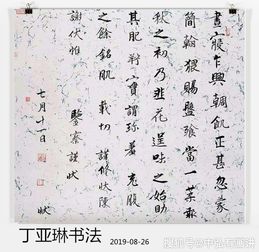 晝寢乍興輖飢正甚忽蒙
簡翰猥賜盤飧當一葉報
秋之初乃韭花逞味之始助
其肥羜實謂珍羞充腹
之餘銘肌載切謹修狀陳
謝伏惟
鑒察謹狀
七月十一日
狀
丁亚琳书法
2019-08-26
搜狐号@中弘